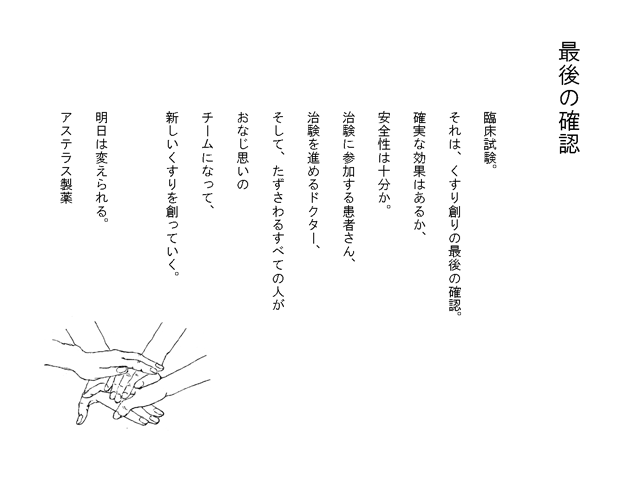 最後の確認
臨床試験。
それは、くすり創りの最後の確認。
確実な効果はあるか、
安全性は十分か。
治験に参加する患者さん、
治験を進めるドクター、
そして、たずさわるすべての人が
おなじ思いの
チームになって、
新しいくすりを創っていく。
明日は変えられる。
アステラス製薬